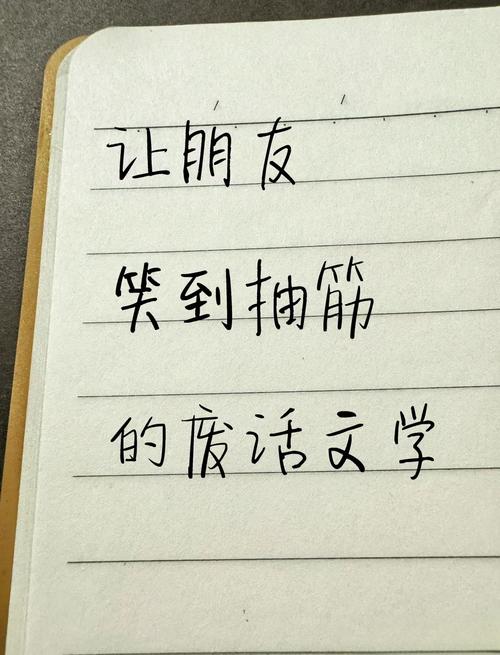 让朋友
笑到抽筋
的废话文学